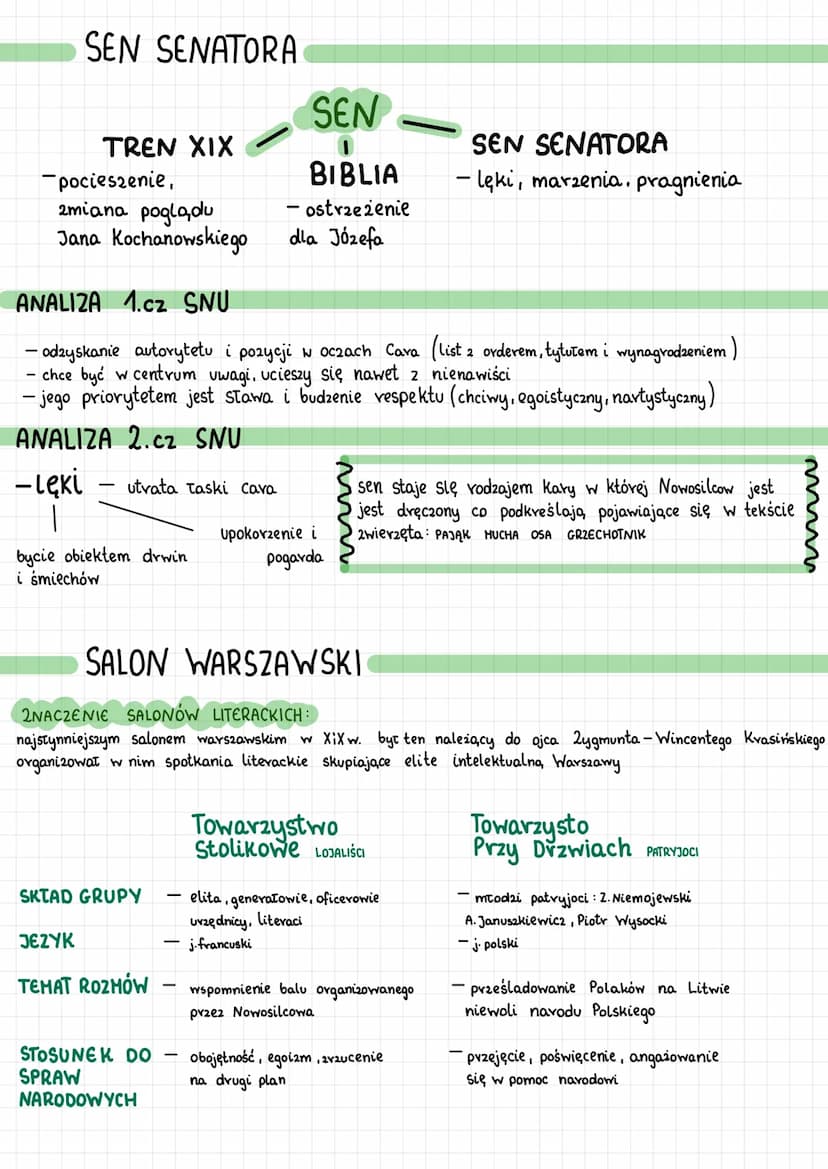 SEN SENATORA
SEN
TREN XIX
-pocieszenie,
zmiana poglądu
Jana Kochanowskiego
BIBLIA
- ostrzeżenie
dla Józefa
SEN SENATORA
- lęki, marzenia. pragnienia
ANALIZA 1.cz SNU
- odzyskanie autorytetu i pozycji w oczach Cara (list z orderem, tytułem i wynagrodzeniem)
- chce być w centrum uwagi, ucieszy się nawet z nienawiści
- jego priorytetem jest sława i budzenie respektu (chciwy, egoistyczny, nartystyczny)
ANALIZA 2.cz SNU
-lęki - utrata łaski cara
upokorzenie i
pogarda
bycie obiektem drwin
i śmiechów
sen staje się rodzajem kary w której Nowosilcow jest
jest dręczony co podkreślają pojawiające się w tekście
zwierzęta: PAJĄK MUCHA OSA GRZECHOTNIK
SALON WARSZAWSKI
ZNACZENIE SALONÓW LITERACKICH:
najsłynniejszym salonem warszawskim w XiX w. był ten należący do ojca Zygmunta - Wincentego Krasińskiego
organizował w nim spotkania literackie skupiające elite intelektualną Warszawy
Towarzystwo
Stolikowe LOJALIŚCI
Towarzysto
Przy Drzwiach PATRYJOCI
SKŁAD GRUPY - elita, generałowie, oficerowie
urzędnicy, literaci
- młodzi patryjoci: Z. Niemojewski
A. Januszkiewicz, Piotr Wysocki
JEZYK - j. francuski
- j. polski
TEMAT ROZMÓW - wspomnienie balu organizowanego
przez Nowosilcowa
- prześladowanie Polaków na Litwie
niewoli narodu Polskiego
STOSUNEK DO
SPRAW
NARODOWYCH
- obojętność, egoizm, zrzucenie
na drugi plan
- przejęcie, poświęcenie, angażowanie
się w pomoc narodowi